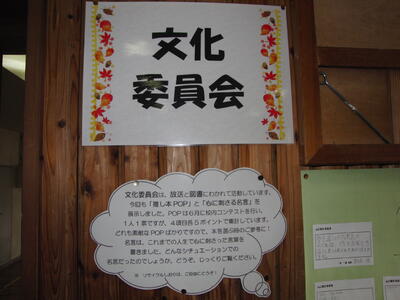 文化
委員会
文化委員会は、放送と図書にわかれて活動しています。
今回も「推し本POP」と「心に刺さる名言」を
展示しました。POPは6月に校内コンテストを行い、
1人1票ですが、4項目各5ポイントで集計しています。
どれも素敵なPOPばかりですので、本を選ぶ時のご参考に!
名言は、これまでの人生で心に刺さった言葉を
書きました。どんなシチュエーションでの
名言だったのでしょうか。どうぞ、じっくりご覧ください。
※ リサイクルしおりは、ご自由にどうぞ!